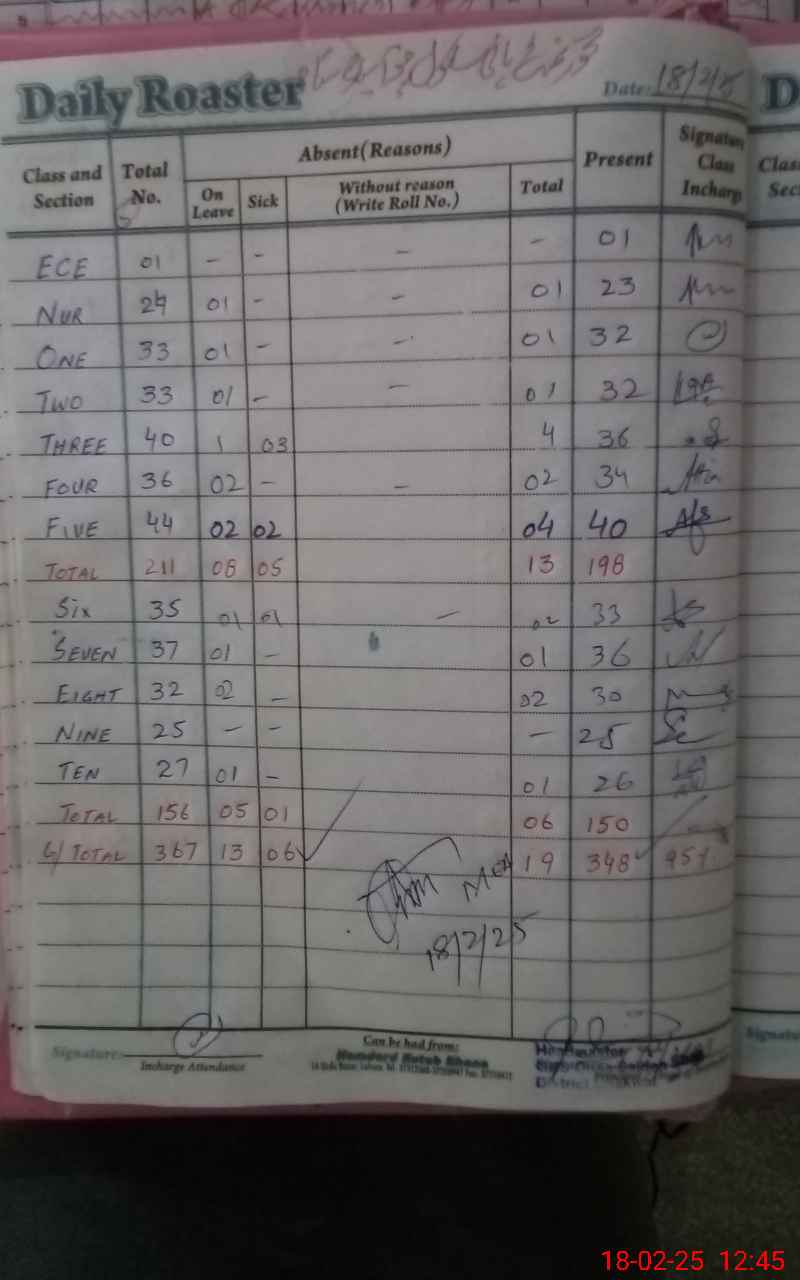 Daily Roaster
Date: 18/2/25
Class and Section Total No. Absent(Reasons) Present Signature Class Incharge
On Leave Sick Without reason (Write Roll No.) Total
ECE 01 - - - - 01
NUR 24 01 - - 01 23
ONE 33 01 - - 01 32
TWO 33 01 - - 01 32
THREE 40 1 03 4 36
FOUR 36 02 - - 02 34
FIVE 44 02 02 04 40
TOTAL 211 08 05 13 198
SIX 35 01 01 - 02 33
SEVEN 37 01 - 01 36
EIGHT 32 02 - 02 30
NINE 25 - - - 25
TEN 27 01 - 01 26
TOTAL 156 05 01 06 150
G/TOTAL 367 13 06 19 348 95%
MEA
18/2/25
Signature:
Incharge Attendance
Can be had from:
Hamdard Kutub Khana
District
D
Class
Sec
Signatu
18-02-25 12:45